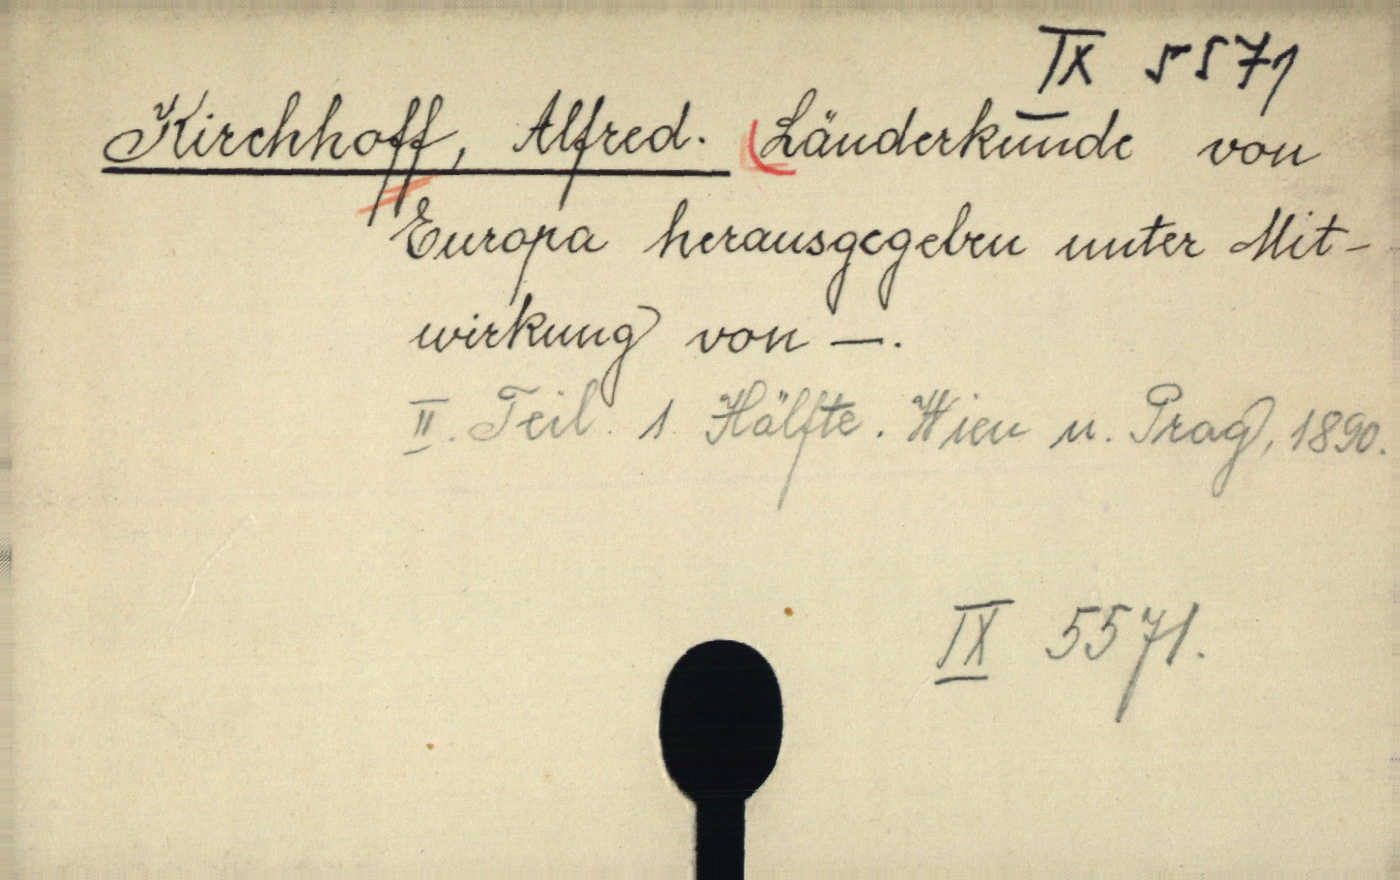 IX 5571
Kirchhoff, Alfred. Länderkunde von
Europa herausgegeben unter Mit-
wirkung von —.
II. Teil. 1 Hälfte. Wien u. Prag, 1890.
IX 5571.